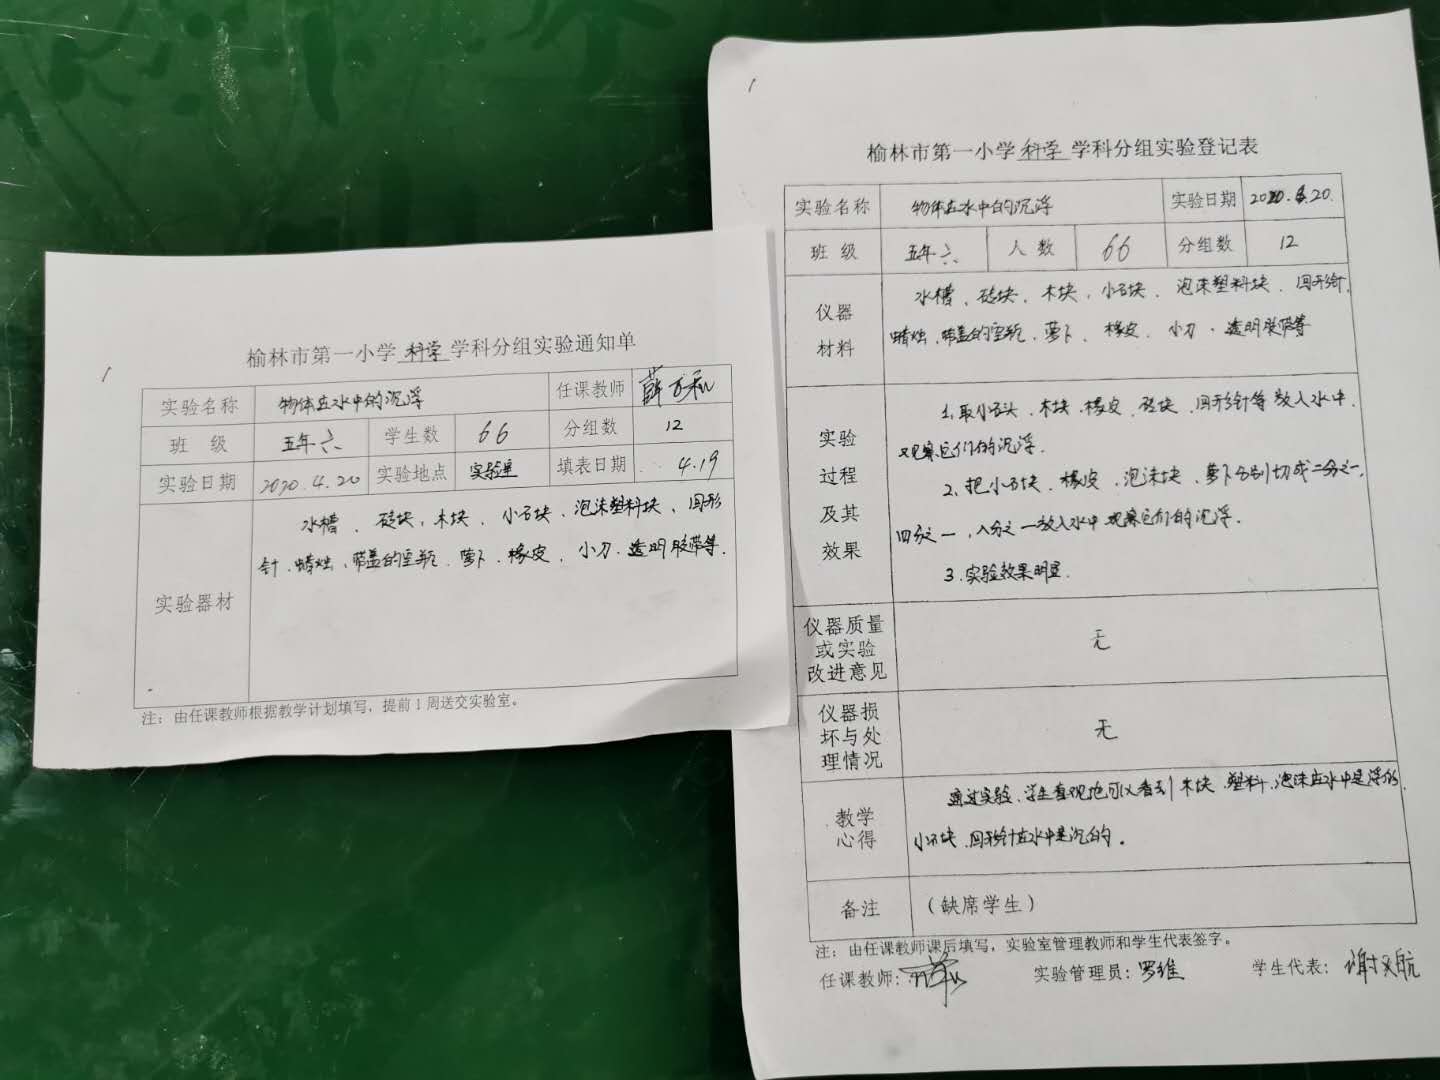 榆林市第一小学 科学 学科分组实验通知单
实验名称 物体在水中的沉浮 任课教师
班 级 五年六 学生数 66 分组数 12
实验日期 2020.4.20 实验地点 实验室 填表日期 4.19
实验器材
水槽、砖块、木块、小石块、泡沫塑料块、回形
针、蜡烛、带盖的空瓶、萝卜、橡皮、小刀、透明胶带等.
注：由任课教师根据教学计划填写，提前1周送交实验室。
榆林市第一小学 科学 学科分组实验登记表
实验名称 物体在水中的沉浮 实验日期 2020.4.20.
班 级 五年六 人 数 66 分组数 12
仪器
材料
水槽、砖块、木块、小石块、泡沫塑料块、回形针、
蜡烛、带盖的空瓶、萝卜、橡皮、小刀、透明胶带等
实验
过程
及其
效果
1.取小石头、木块、橡皮、砖块、回形针等放入水中.
观察它们的沉浮.
2.把小石块、橡皮、泡沫块、萝卜分别切成二分之一,
四分之一,八分之一放入水中观察它们的沉浮.
3.实验效果明显.
仪器质量
或实验
改进意见
无
仪器损
坏与处
理情况
无
教学
心得
通过实验、学生直观地可以看到木块、塑料、泡沫在水中是浮的.
小石块、回形针在水中是沉的。
备注 （缺席学生）
注：由任课教师课后填写，实验室管理教师和学生代表签字。
任课教师: 实验管理员: 罗维 学生代表: